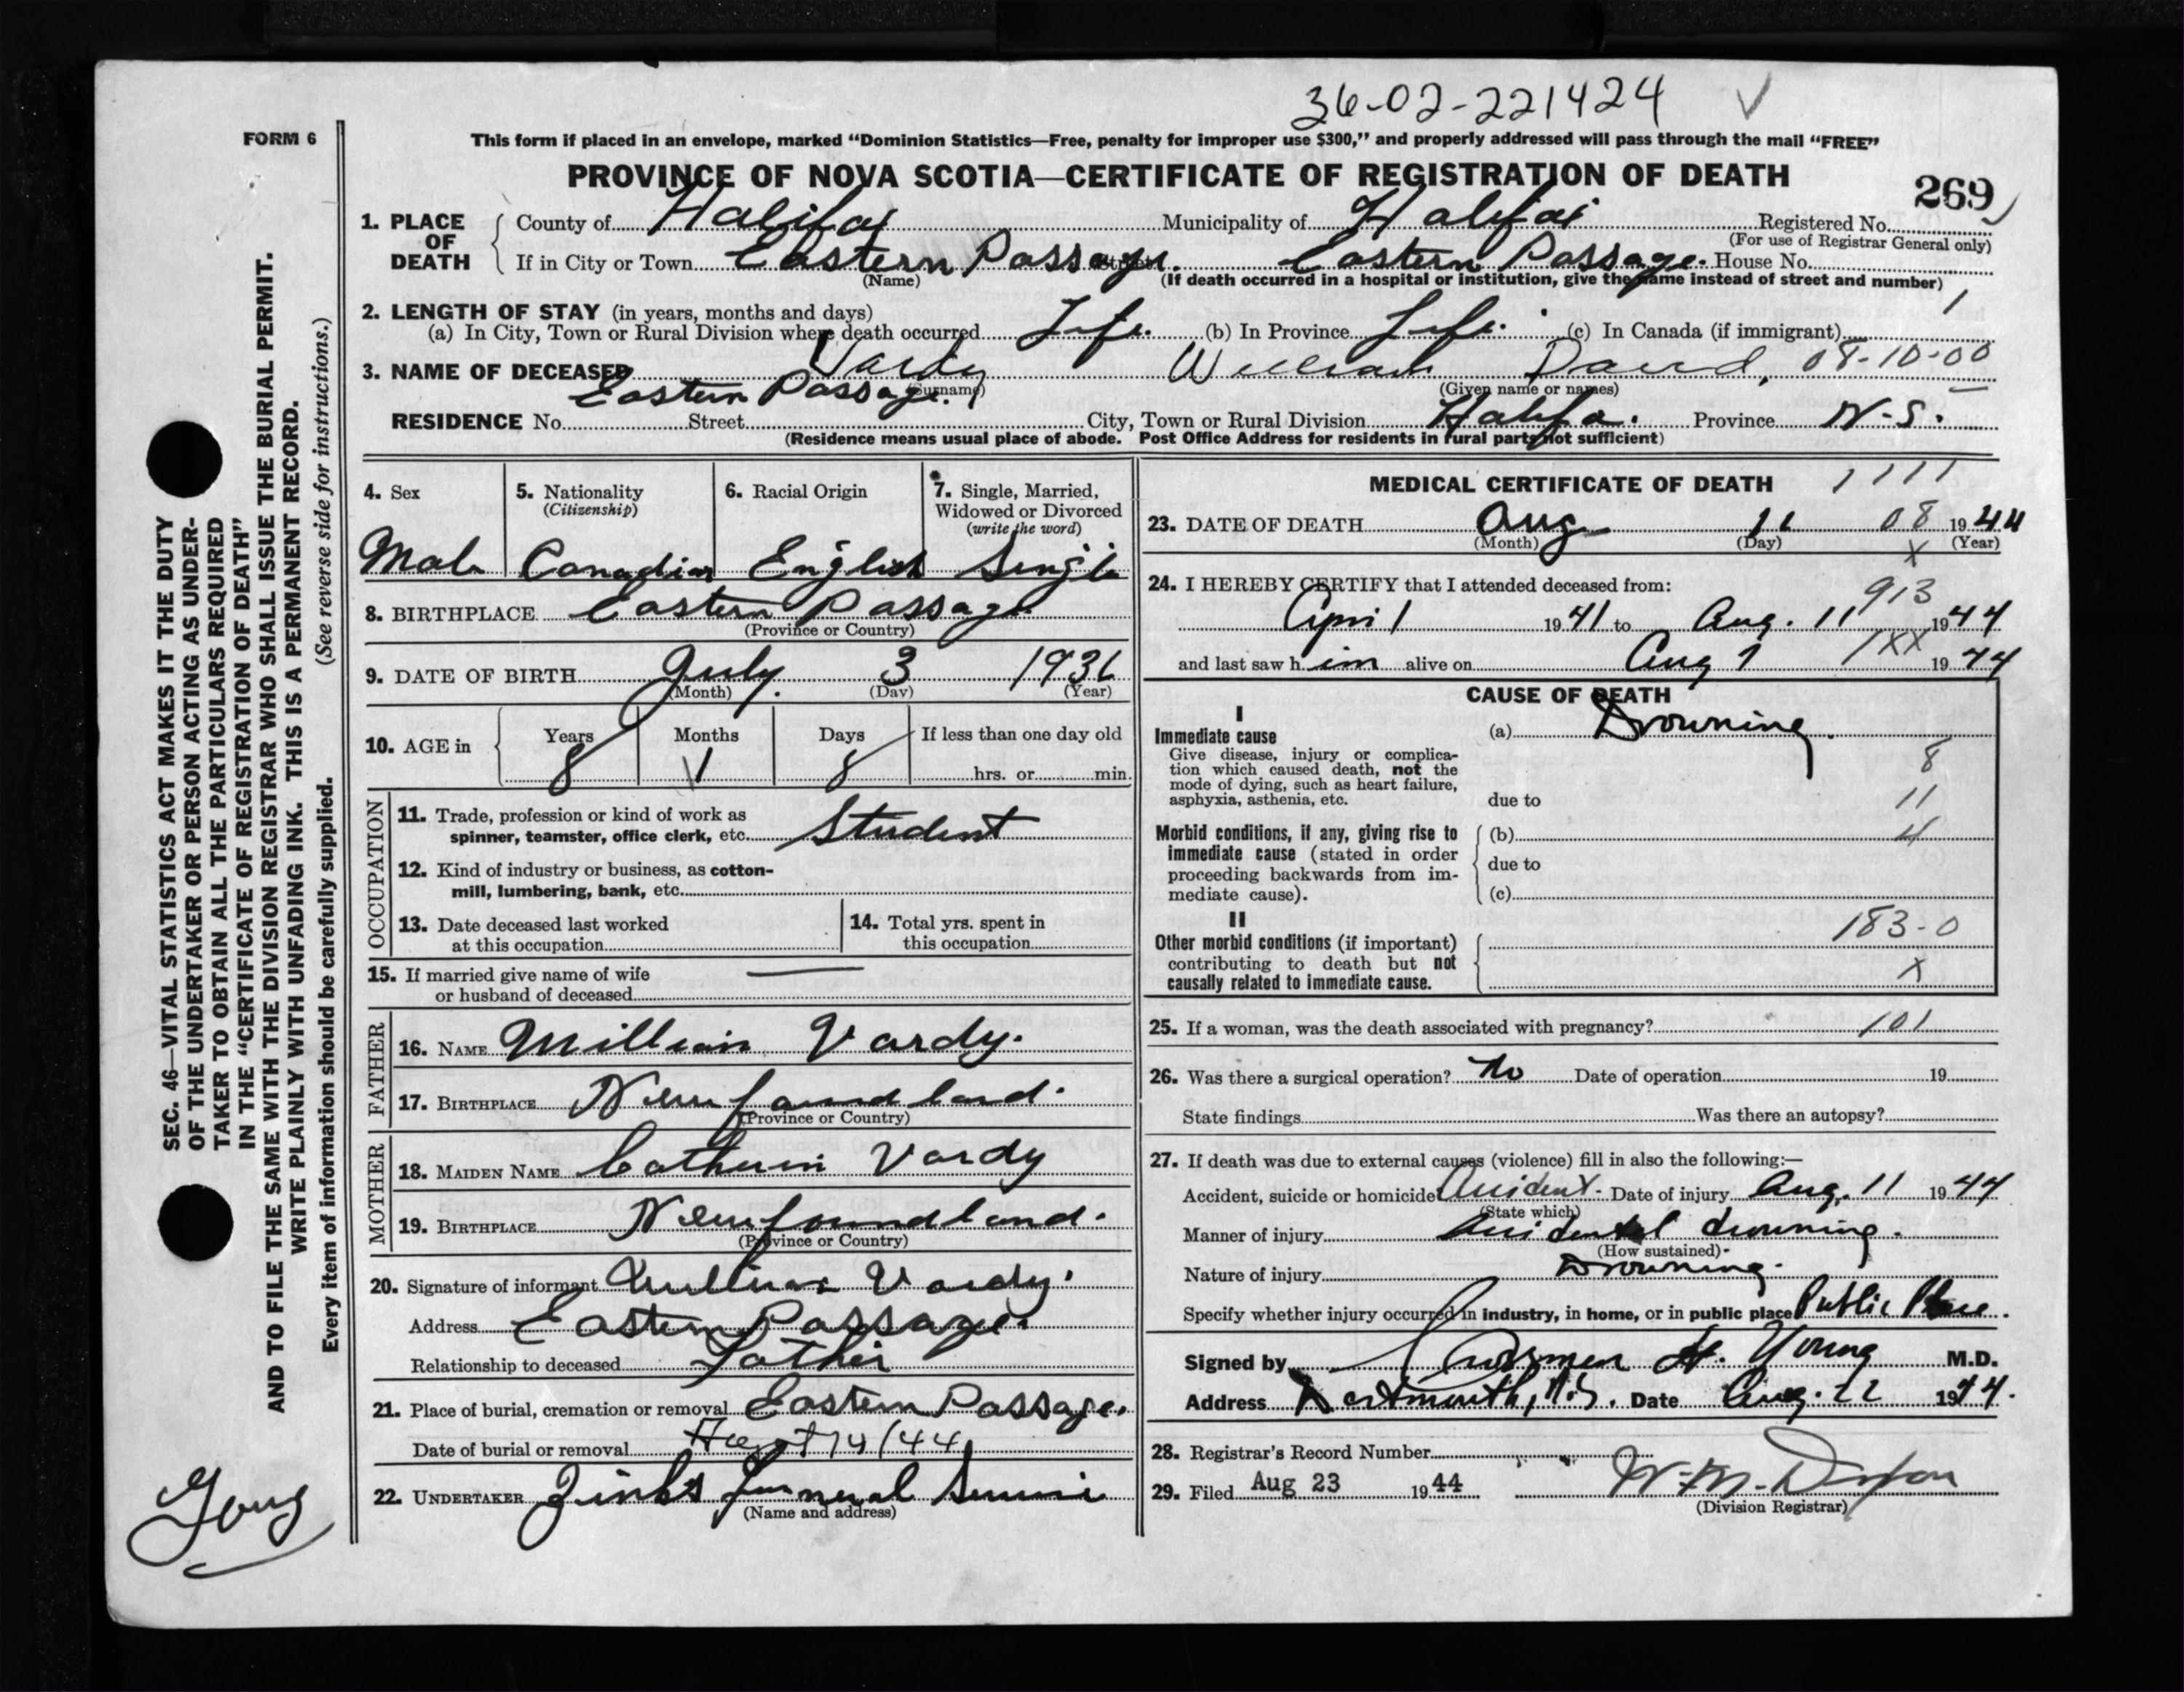 36-02-221424 ✓
FORM 6
This form if placed in an envelope, marked “Dominion Statistics—Free, penalty for improper use $300,” and properly addressed will pass through the mail “FREE”
PROVINCE OF NOVA SCOTIA—CERTIFICATE OF REGISTRATION OF DEATH
269
1. PLACE OF DEATH County of Halifax Municipality of Halifax Registered No.
(For use of Registrar General only)
If in City or Town Eastern Passage. Street Eastern Passage. House No.
(Name) (If death occurred in a hospital or institution, give the name instead of street and number)
2. LENGTH OF STAY (in years, months and days) 1
(a) In City, Town or Rural Division where death occurred Life. (b) In Province Life. (c) In Canada (if immigrant)
3. NAME OF DECEASED Vardy William David, 08-10-00
(Surname) (Given name or names)
Eastern Passage.
RESIDENCE No. Street City, Town or Rural Division Halifa. Province N-S.
(Residence means usual place of abode. Post Office Address for residents in rural parts not sufficient)
4. Sex 5. Nationality (Citizenship) 6. Racial Origin 7. Single, Married, Widowed or Divorced (write the word)
Male Canadian English Single
8. BIRTHPLACE Eastern Passage
(Province or Country)
9. DATE OF BIRTH July 3 1936
(Month) (Day) (Year)
10. AGE in Years Months Days If less than one day old
8 1 8 hrs. or min.
OCCUPATION
11. Trade, profession or kind of work as
spinner, teamster, office clerk, etc. Student
12. Kind of industry or business, as cotton-
mill, lumbering, bank, etc.
13. Date deceased last worked
at this occupation
14. Total yrs. spent in
this occupation
15. If married give name of wife
or husband of deceased
FATHER
16. NAME William Vardy.
17. BIRTHPLACE Newfoundland.
(Province or Country)
MOTHER
18. MAIDEN NAME Catherin Vardy
19. BIRTHPLACE Newfoundland.
(Province or Country)
20. Signature of informant William Vardy.
Address Eastern Passage.
Relationship to deceased Father
21. Place of burial, cremation or removal Eastern Passage.
Date of burial or removal 14/44
22. UNDERTAKER Zink's Funeral Service
(Name and address)
MEDICAL CERTIFICATE OF DEATH 1111
23. DATE OF DEATH Aug 11 08 1944
(Month) (Day) (Year)
x
24. I HEREBY CERTIFY that I attended deceased from:
913
April 1941 to Aug. 11 1944
1XX
and last saw him alive on Aug 1 1944
CAUSE OF DEATH
I
Immediate cause (a) Drowning.
Give disease, injury or complica-
tion which caused death, not the
mode of dying, such as heart failure,
asphyxia, asthenia, etc. due to
8
11
4
Morbid conditions, if any, giving rise to (b)
immediate cause (stated in order due to
proceeding backwards from im-
mediate cause). (c)
II
183-0
Other morbid conditions (if important)
contributing to death but not
causally related to immediate cause. x
25. If a woman, was the death associated with pregnancy? 101
26. Was there a surgical operation? No Date of operation 19
State findings Was there an autopsy?
27. If death was due to external causes (violence) fill in also the following:—
Accident, suicide or homicide Accident. Date of injury Aug. 11 1944
(State which)
Manner of injury Accidental drowning.
(How sustained)
Nature of injury Drowning.
Specify whether injury occurred in industry, in home, or in public place Public Place.
Signed by H. Young M.D.
Address Dartmouth, N.S. Date Aug. 22 1944.
28. Registrar's Record Number
29. Filed Aug 23 1944 W.M.
(Division Registrar)
SEC. 46—VITAL STATISTICS ACT MAKES IT THE DUTY
OF THE UNDERTAKER OR PERSON ACTING AS UNDER-
TAKER TO OBTAIN ALL THE PARTICULARS REQUIRED
IN THE “CERTIFICATE OF REGISTRATION OF DEATH”
AND TO FILE THE SAME WITH THE DIVISION REGISTRAR WHO SHALL ISSUE THE BURIAL PERMIT.
WRITE PLAINLY WITH UNFADING INK. THIS IS A PERMANENT RECORD.
(See reverse side for instructions.)
Every item of information should be carefully supplied.